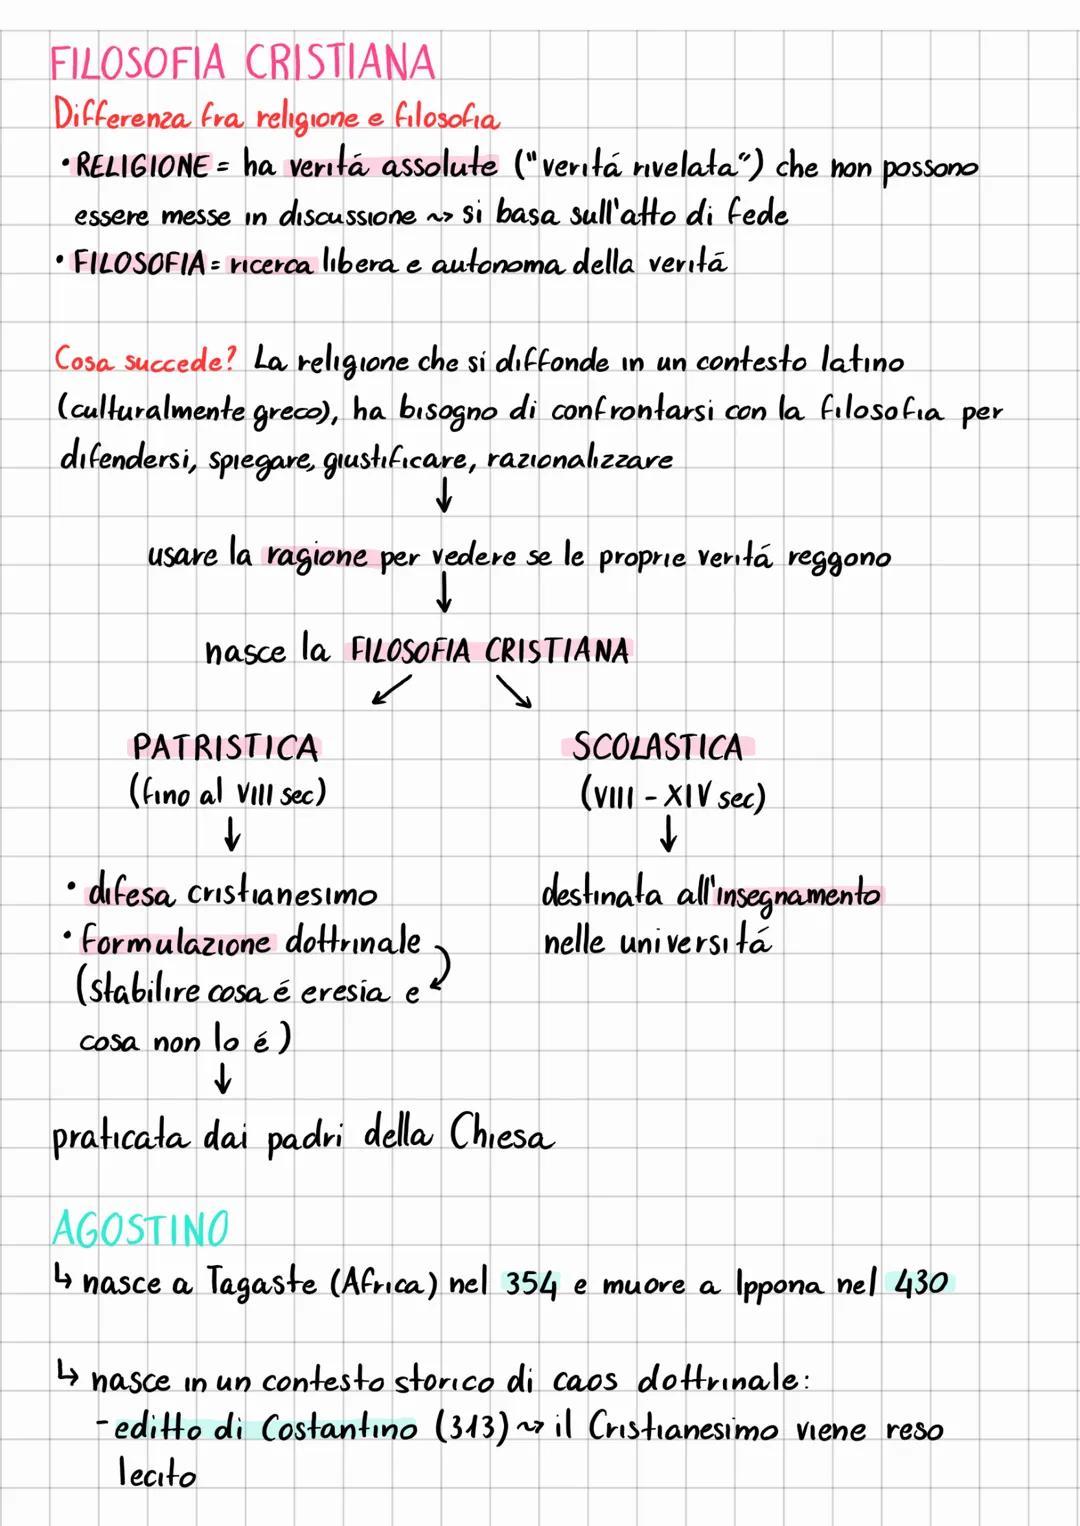 FILOSOFIA CRISTIANA
Differenza fra religione e filosofia
• RELIGIONE = ha veritá assolute ("veritá rivelata") che non possono
essere messe in discussione ~> si basa sull'atto di fede
• FILOSOFIA = ricerca libera e autonoma della veritá
Cosa succede? La religione che si diffonde in un contesto latino
(culturalmente greco), ha bisogno di confrontarsi con la filosofia per
difendersi, spiegare, giustificare, razionalizzare
↓
usare la ragione per vedere se le proprie veritá reggono
↓
nasce la FILOSOFIA CRISTIANA
↙ ↘
PATRISTICA
(fino al VIII sec)
↓
• difesa cristianesimo
• formulazione dottrinale
(stabilire cosa é eresia e
cosa non lo é)
↓
praticata dai padri della Chiesa
SCOLASTICA
(VIII - XIV sec)
↓
destinata all'insegnamento
nelle universitá
AGOSTINO
↳ nasce a Tagaste (Africa) nel 354 e muore a Ippona nel 430
↳ nasce in un contesto storico di caos dottrinale:
- editto di Costantino (313) ~> il Cristianesimo viene reso
lecito